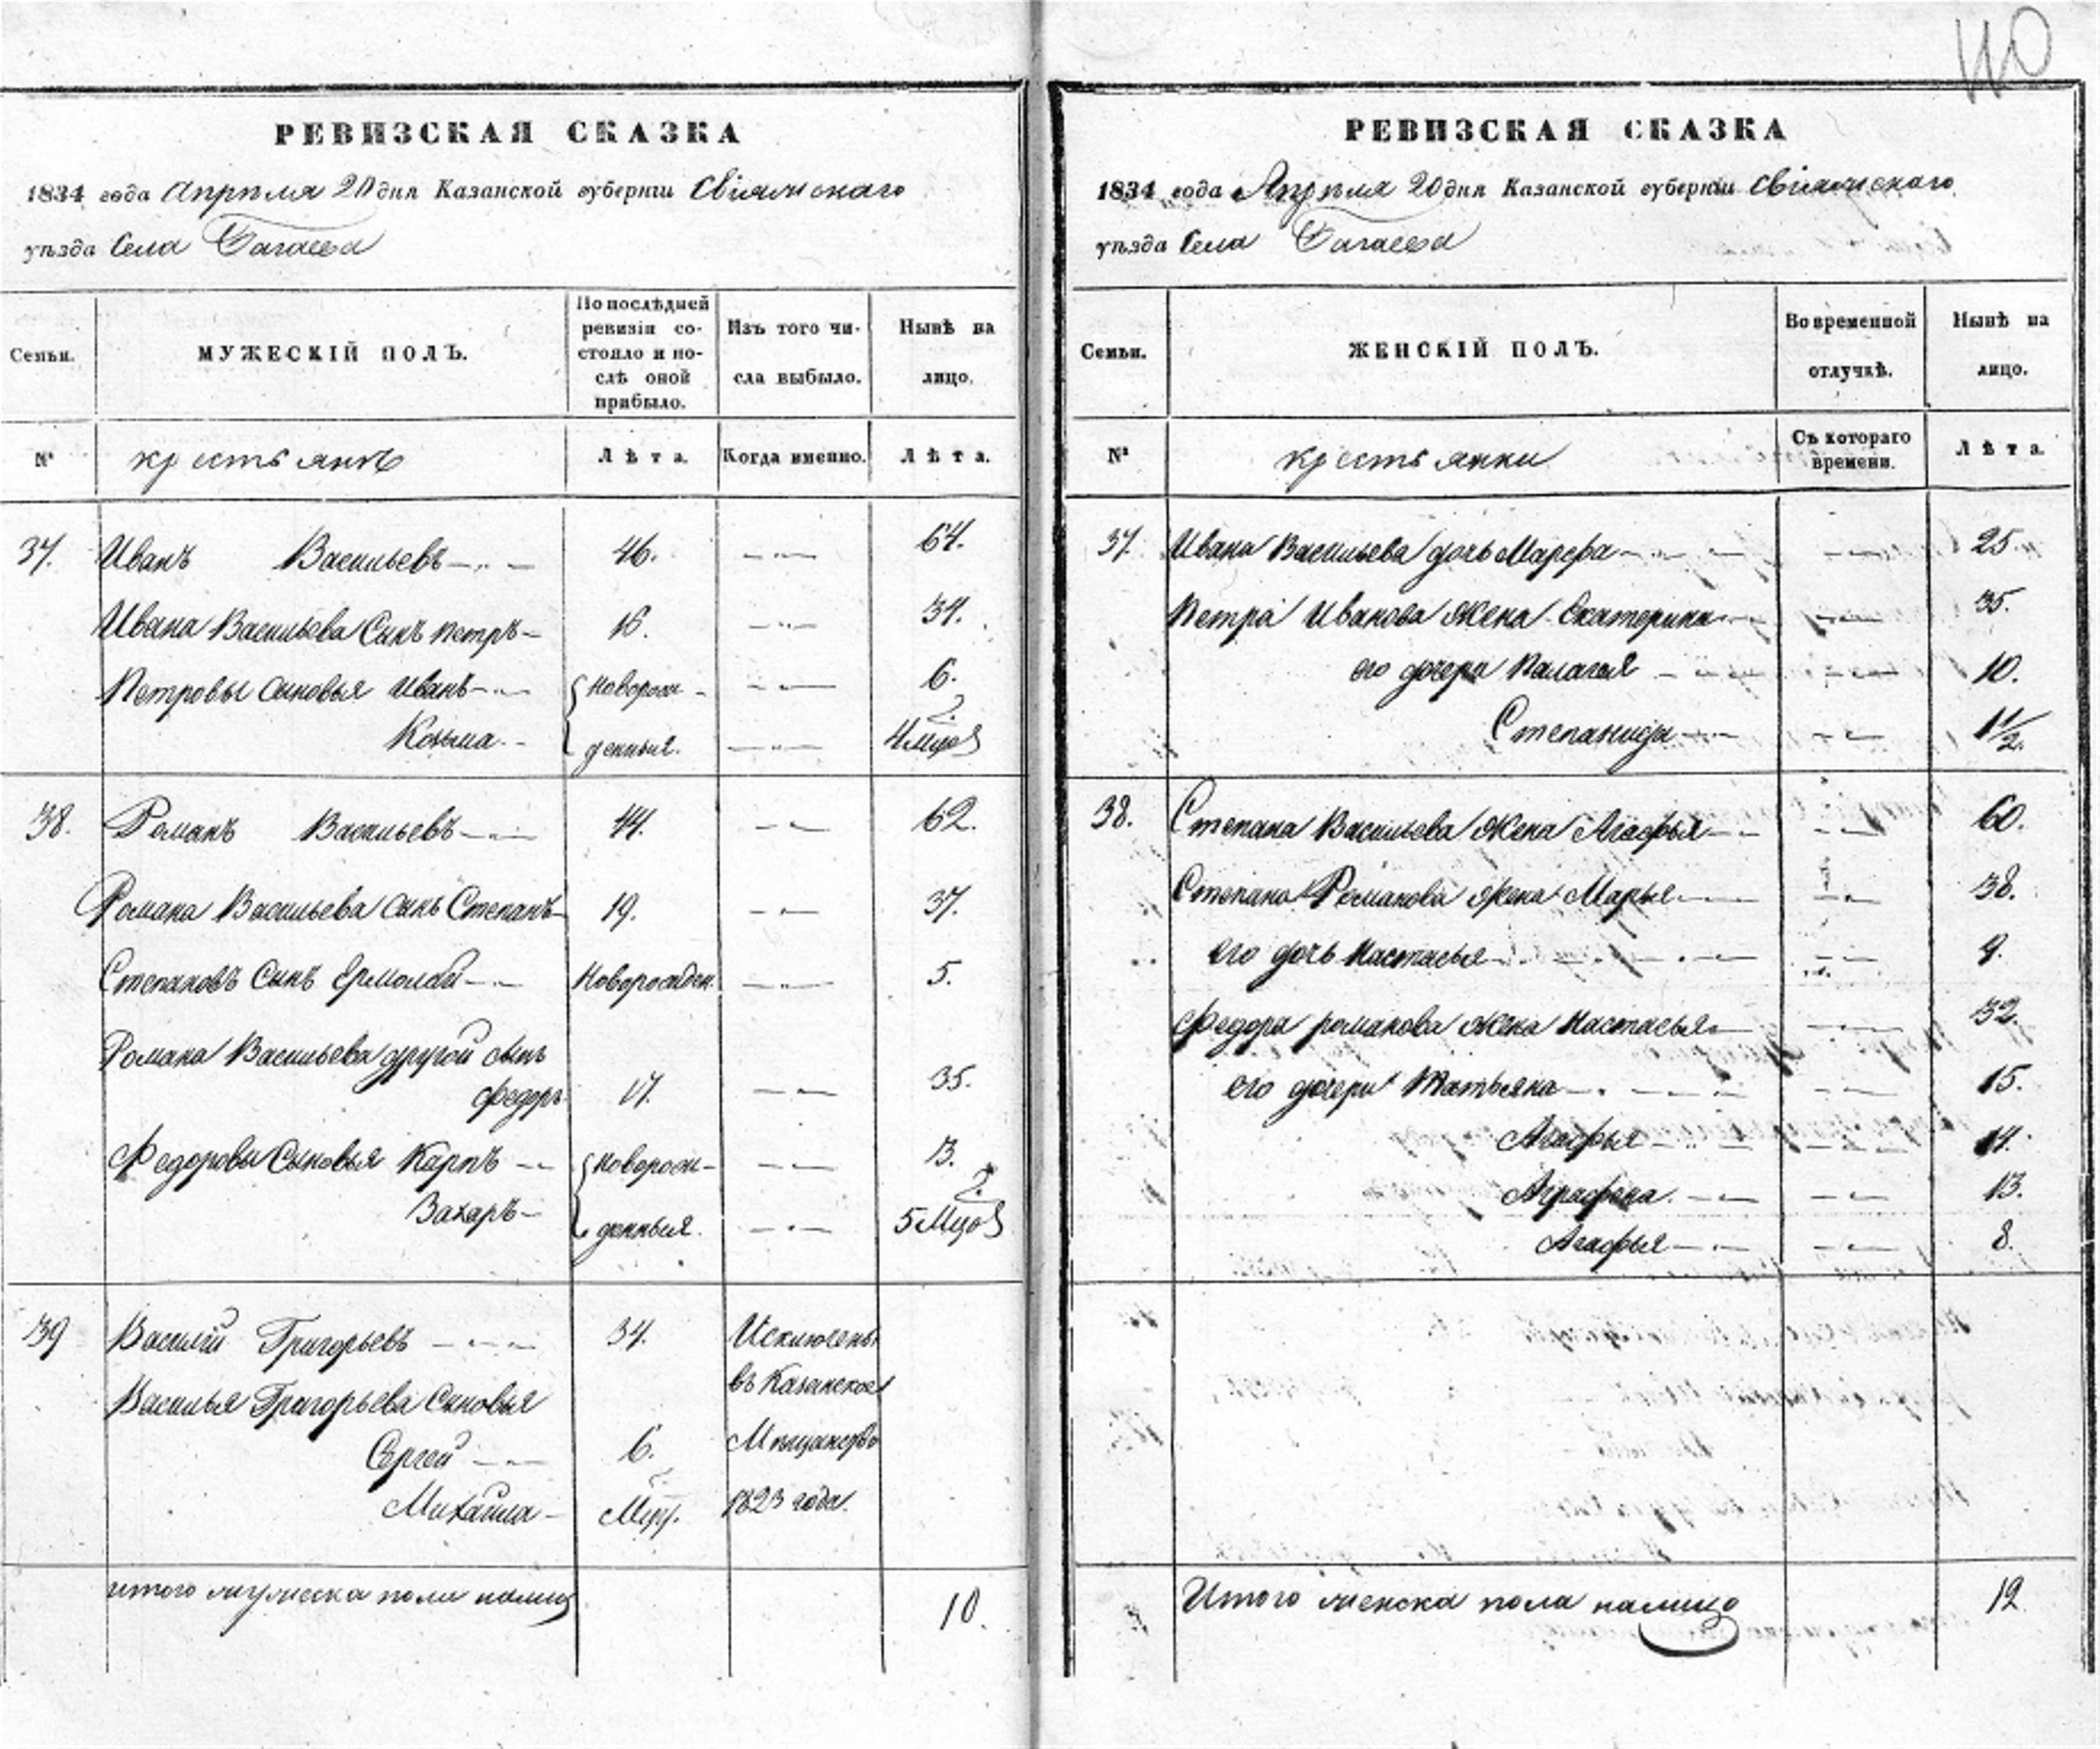 110
РЕВИЗСКАЯ СКАЗКА
1834 года Апрѣля 20 дня Казанской губерніи Свіяжскаго
уѣзда Села Багаева
Семьи.
МУЖЕСКІЙ ПОЛЪ.
По послѣдней ревизіи состояло и послѣ оной прибыло.
Изъ того числа выбыло.
Нынѣ на лицо.
№
крестьянъ
Лѣта.
Когда именно.
Лѣта.
37. Иванъ Васильевъ 46. 64.
Ивана Васильева Сынъ Петръ 16. 34.
Петровы сыновья Иванъ Новорож- 6.
Козьма денныя. 4 2
38. Романъ Васильевъ 44. 62.
Романа Васильева сынъ Степанъ 19. 37.
Степановъ Сынъ Ермолай Новорожден. 5.
Романа Васильева другой сынъ
Федоръ 17. 35.
Федоровы Сыновья Карпъ Новорож- 3.
Захаръ денныя. 5 2
39 Василій Григорьевъ 34. Исключены
Василья Григорьева Сыновья въ Казанское
Сергей 6. Мѣщанство
Михайла 1823 года.
итого мужеска пола налицо 10.
РЕВИЗСКАЯ СКАЗКА
1834 года Апрѣля 20 дня Казанской губерніи Свіяжскаго
уѣзда Села Багаева
Семьи.
ЖЕНСКІЙ ПОЛЪ.
Во временной отлучкѣ.
Нынѣ на лицо.
№
крестьянки
Съ котораго времени.
Лѣта.
37. Ивана Васильева дочь Марфа 25.
Петра Иванова жена Екатерина 35.
его дочери Палагея 10.
Степанида 1 1/2.
38. Степана Васильева жена Агафья 60.
Степана Романова жена Марья 38.
его дочь Настасья 9.
Федора романова жена Настасья 32.
его дочери Татьяна 15.
Агафья 14.
Аграфена 13.
Агафья 8.
Итого женска пола налицо 12